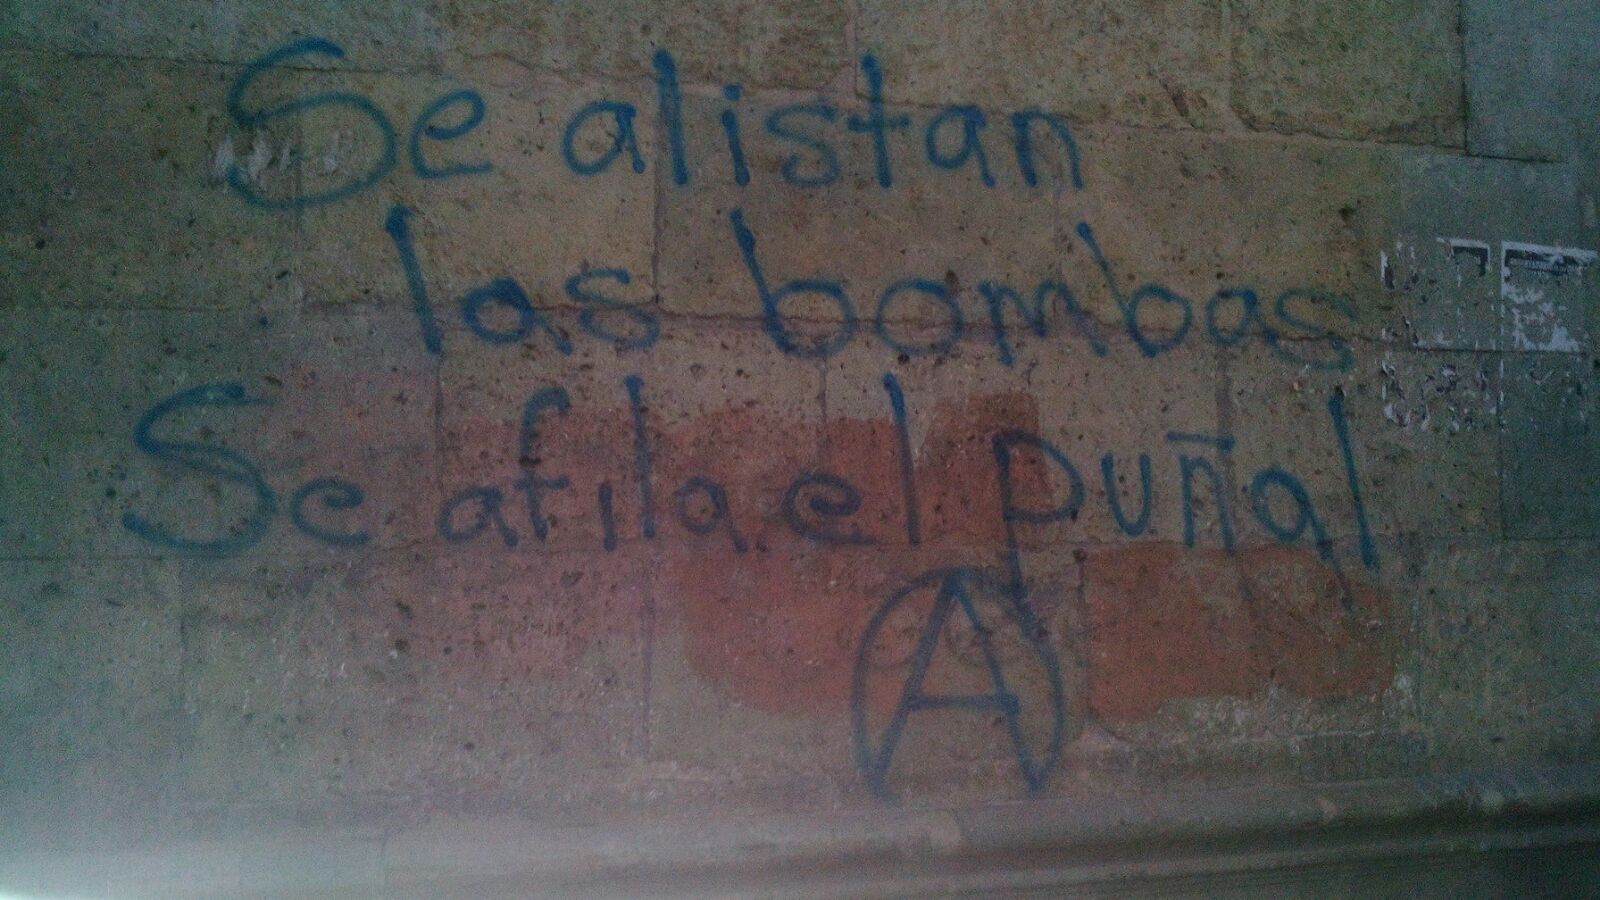 Se alistan
las bombas
Se afila el puñal
A